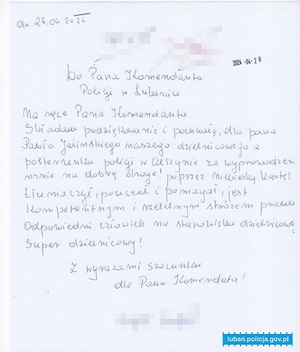 dn. 24.04.2024
2024-04-28
Do Pana Komendanta
Policji w Lubaniu
Na ręce Pana Komendanta
Składam podziękowanie i pochwałę, dla pana
Pawła naszego dzielnicowego z
posterunku policji w za wyprowadzenie
mnie na dobrą drogę! poprzez Niebieską Kartę!
pouczał i pomagał, jest
kompetentnym i rzetelnym stróżem prawa
Odpowiedni człowiek na stanowisku dzielnicowego
Super dzielnicowy!
Z wyrazami szacunku
dla Pana Komendata!
luban.policja.gov.pl